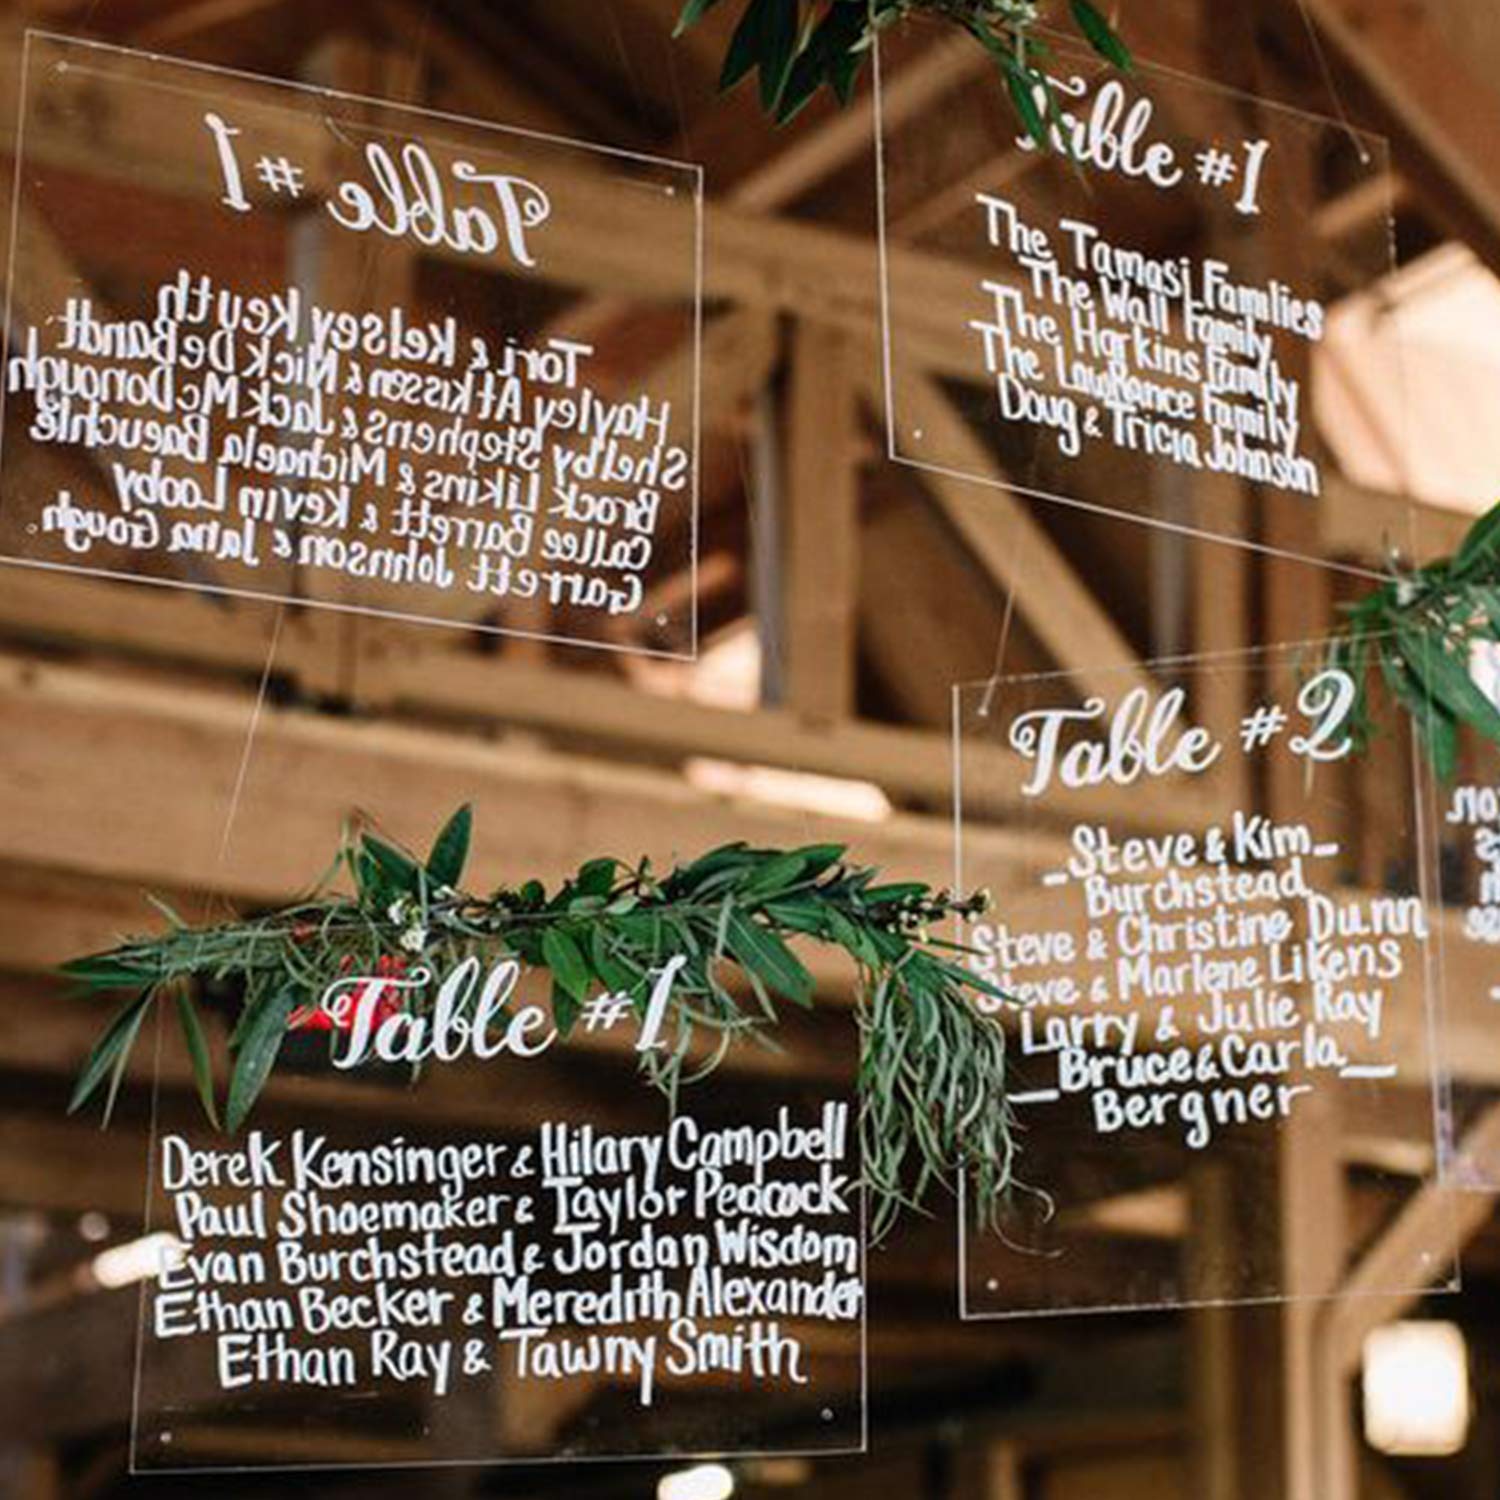 Table #1
Tori & Kelsey Keuth
Hayley Atkisson & Nick DeBandt
Shelby Stephens & Jack McDonough
Brock Likins & Michaela Baeuchle
Callee Barrett & Kevin Looby
Garrett Johnson & Jana Gough
Table #1
The Tamasi Families
The Wall Family
The Harkins Family
The Lawrance Family
Doug & Tricia Johnson
Table #1
Derek Kensinger & Hilary Campbell
Paul Shoemaker & Taylor Peacock
Evan Burchstead & Jordan Wisdom
Ethan Becker & Meredith Alexander
Ethan Ray & Tawny Smith
Table #2
Steve & Kim
Burchstead
Steve & Christine Dunn
Steve & Marlene Likens
Larry & Julie Ray
Bruce & Carla
Bergner